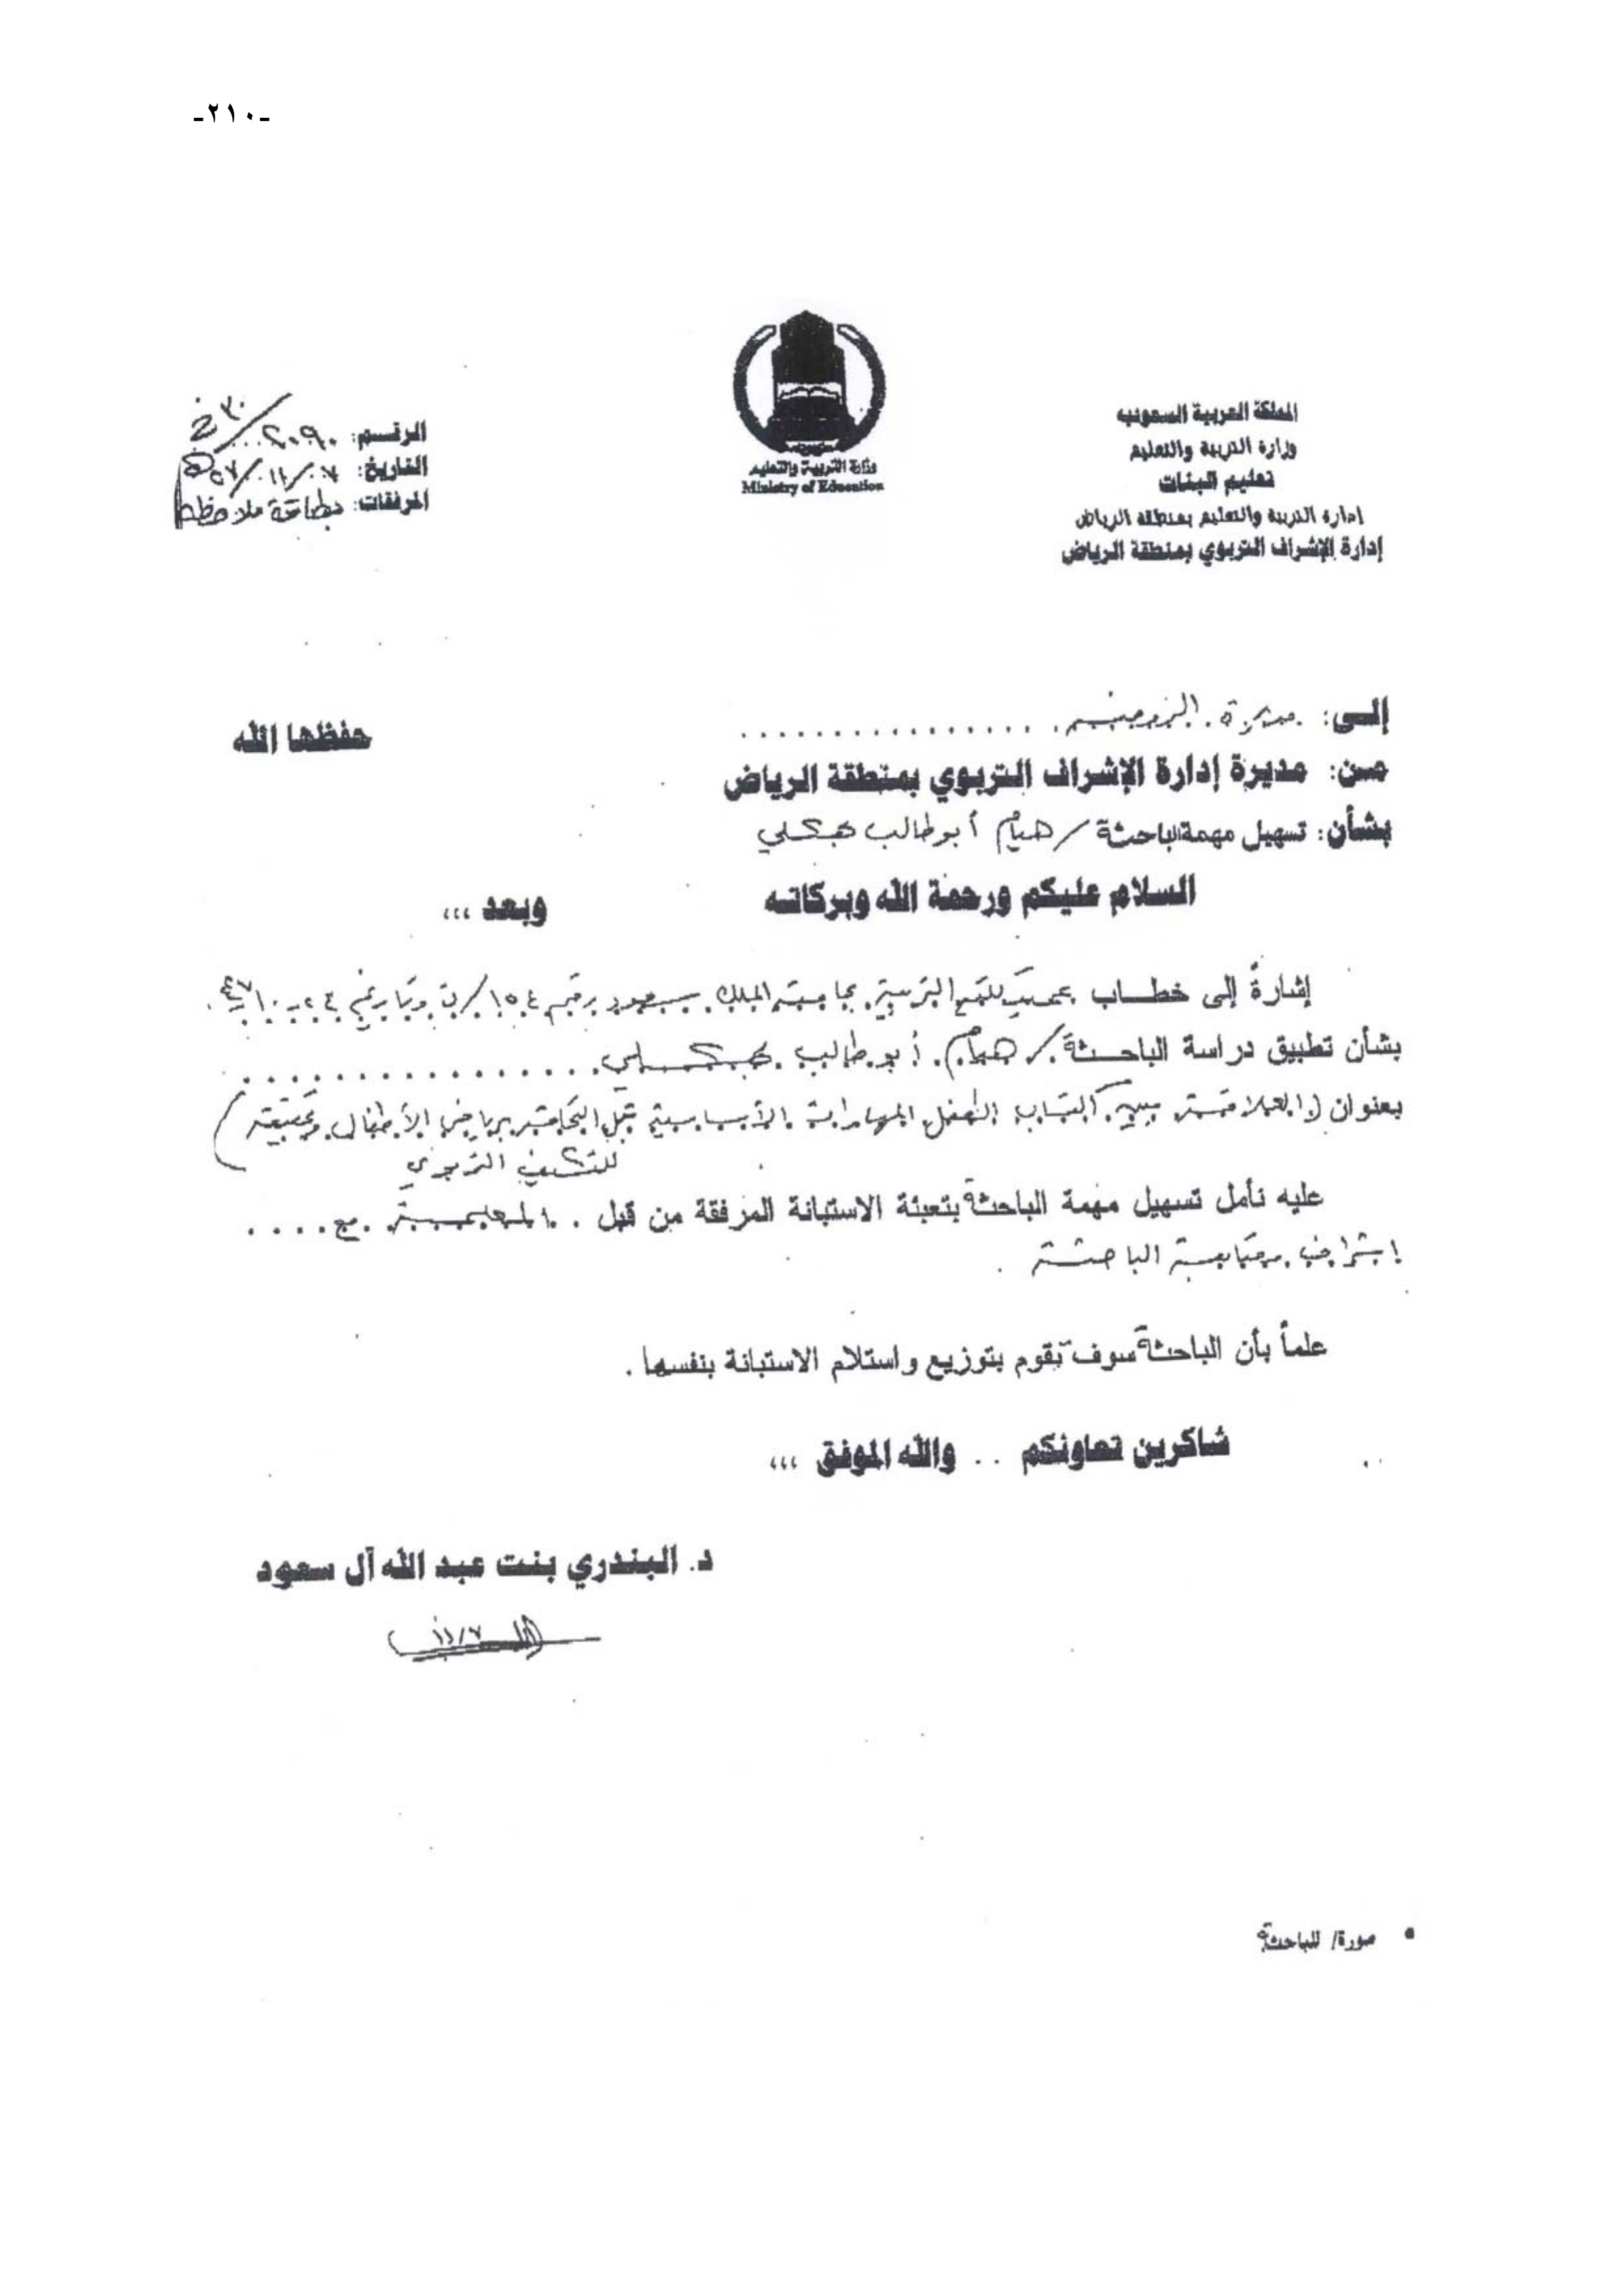 -٢١٠-
المملكة العربية السعودية
وزارة التربية والتعليم
تعليم البنات
إدارة التربية والتعليم بمنطقة الرياض
إدارة الإشراف التربوي بمنطقة الرياض
وزارة التربية والتعليم
Ministry of Education
الرقم: ٢٠٩٠
التاريخ: ٠٧/١١/٢٧هـ
المرفقات: بطاقة ملاحظة
إلى: مديرة الروضة حفظها الله
من: مديرة إدارة الإشراف التربوي بمنطقة الرياض
بشأن: تسهيل مهمة الباحثة / هيام أبو طالب
السلام عليكم ورحمة الله وبركاته وبعد ،،،
إشارة إلى خطاب كلية التربية بجامعة الملك سعود برقم ١٥٤/ن وتاريخ
بشأن تطبيق دراسة الباحثة / هيام أبو طالب
بعنوان (العلاقة بين اكتساب الطفل المهارات الأساسية قبل التحاقه برياض الأطفال وتحقيقه)
للتكيف التربوي
عليه نأمل تسهيل مهمة الباحثة بتعبئة الاستبانة المرفقة من قبل المعلمة مع
إشراف ومتابعة الباحثة .
علماً بأن الباحثة سوف تقوم بتوزيع واستلام الاستبانة بنفسها .
شاكرين تعاونكم .. والله الموفق ،،،
د. البندري بنت عبد الله آل سعود
١١/٧
• صورة/ للباحثة